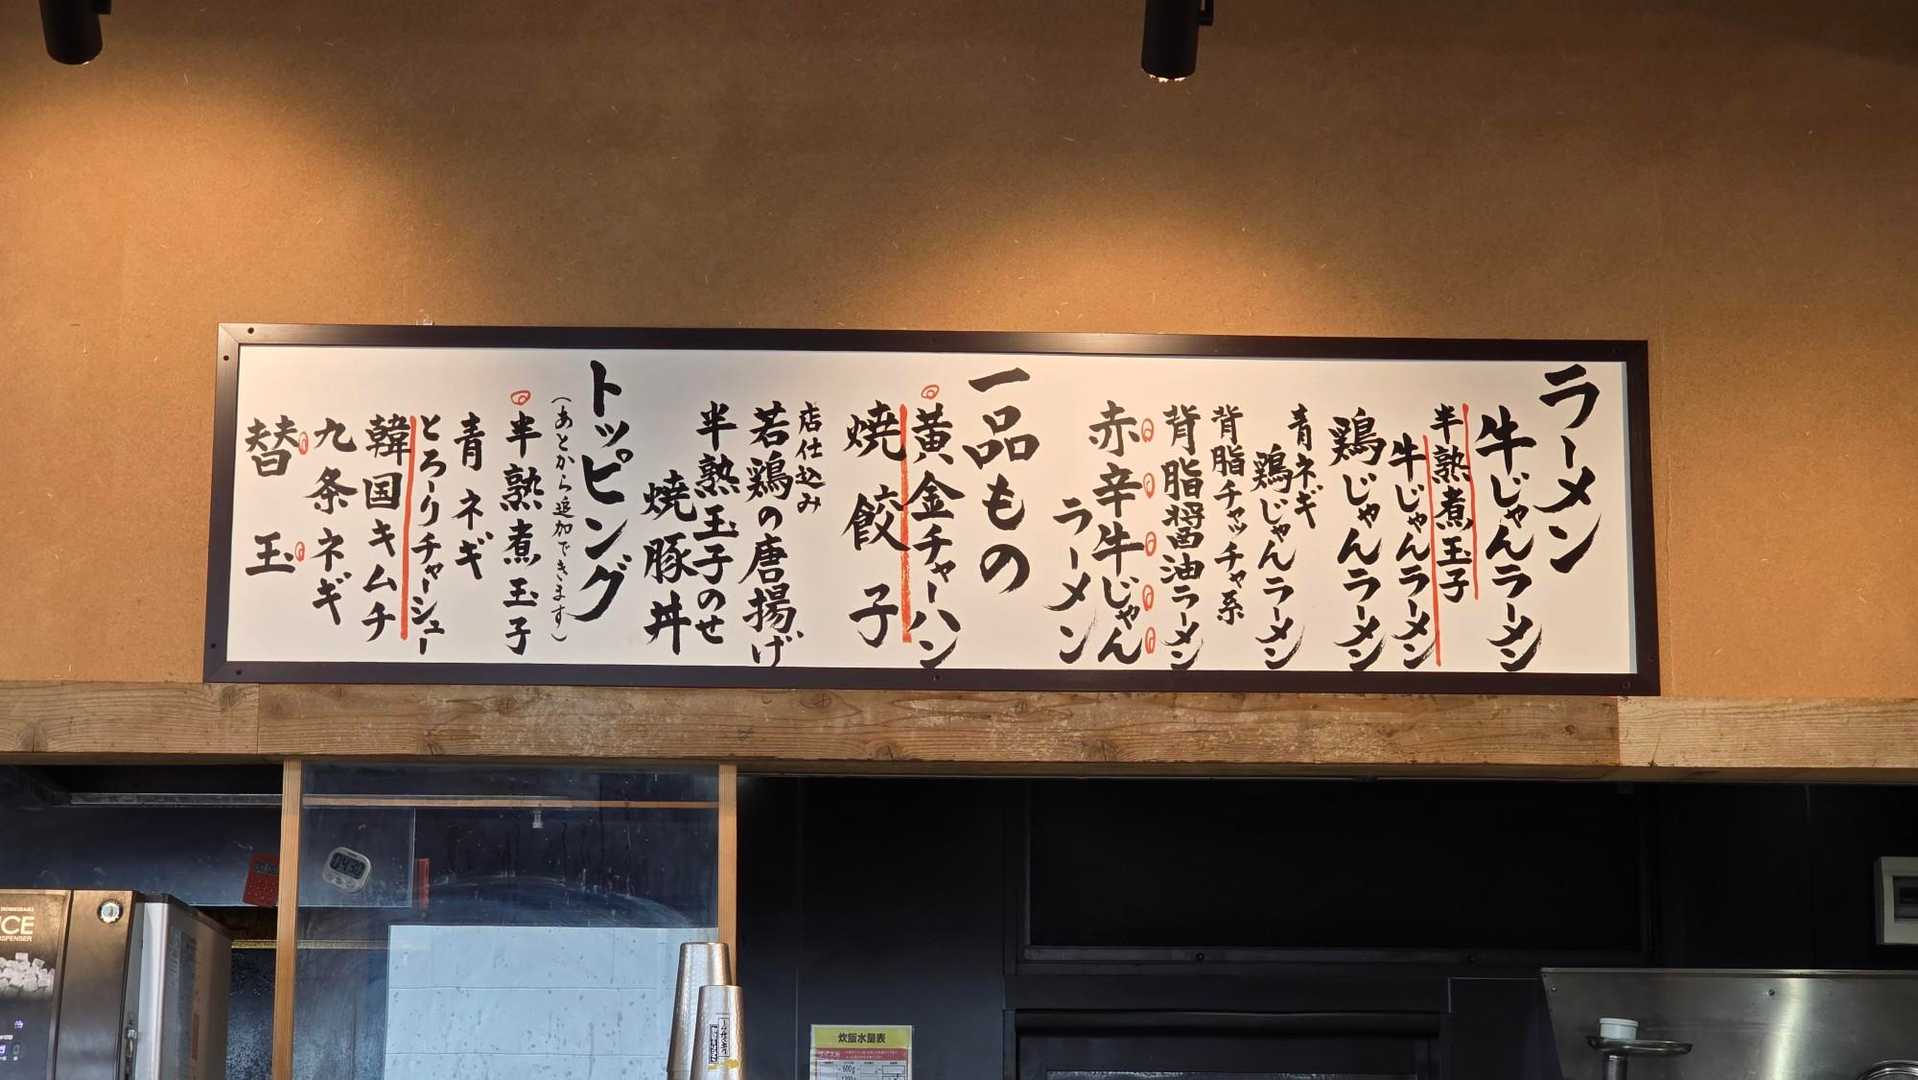 ラーメン
牛じゃんラーメン
半熟煮玉子
牛じゃんラーメン
鶏じゃんラーメン
青ネギ
鶏じゃんラーメン
背脂チャッチャ系
背脂醤油ラーメン
赤辛牛じゃん
ラーメン
一品もの
黄金チャーハン
焼餃子
店仕込み
若鶏の唐揚げ
半熟玉子のせ
焼豚丼
トッピング
(あとから追加できます)
半熟煮玉子
青ネギ
とろーりチャーシュー
韓国キムチ
九条ネギ
替玉
ICE
DISPENSER
炊飯水量表